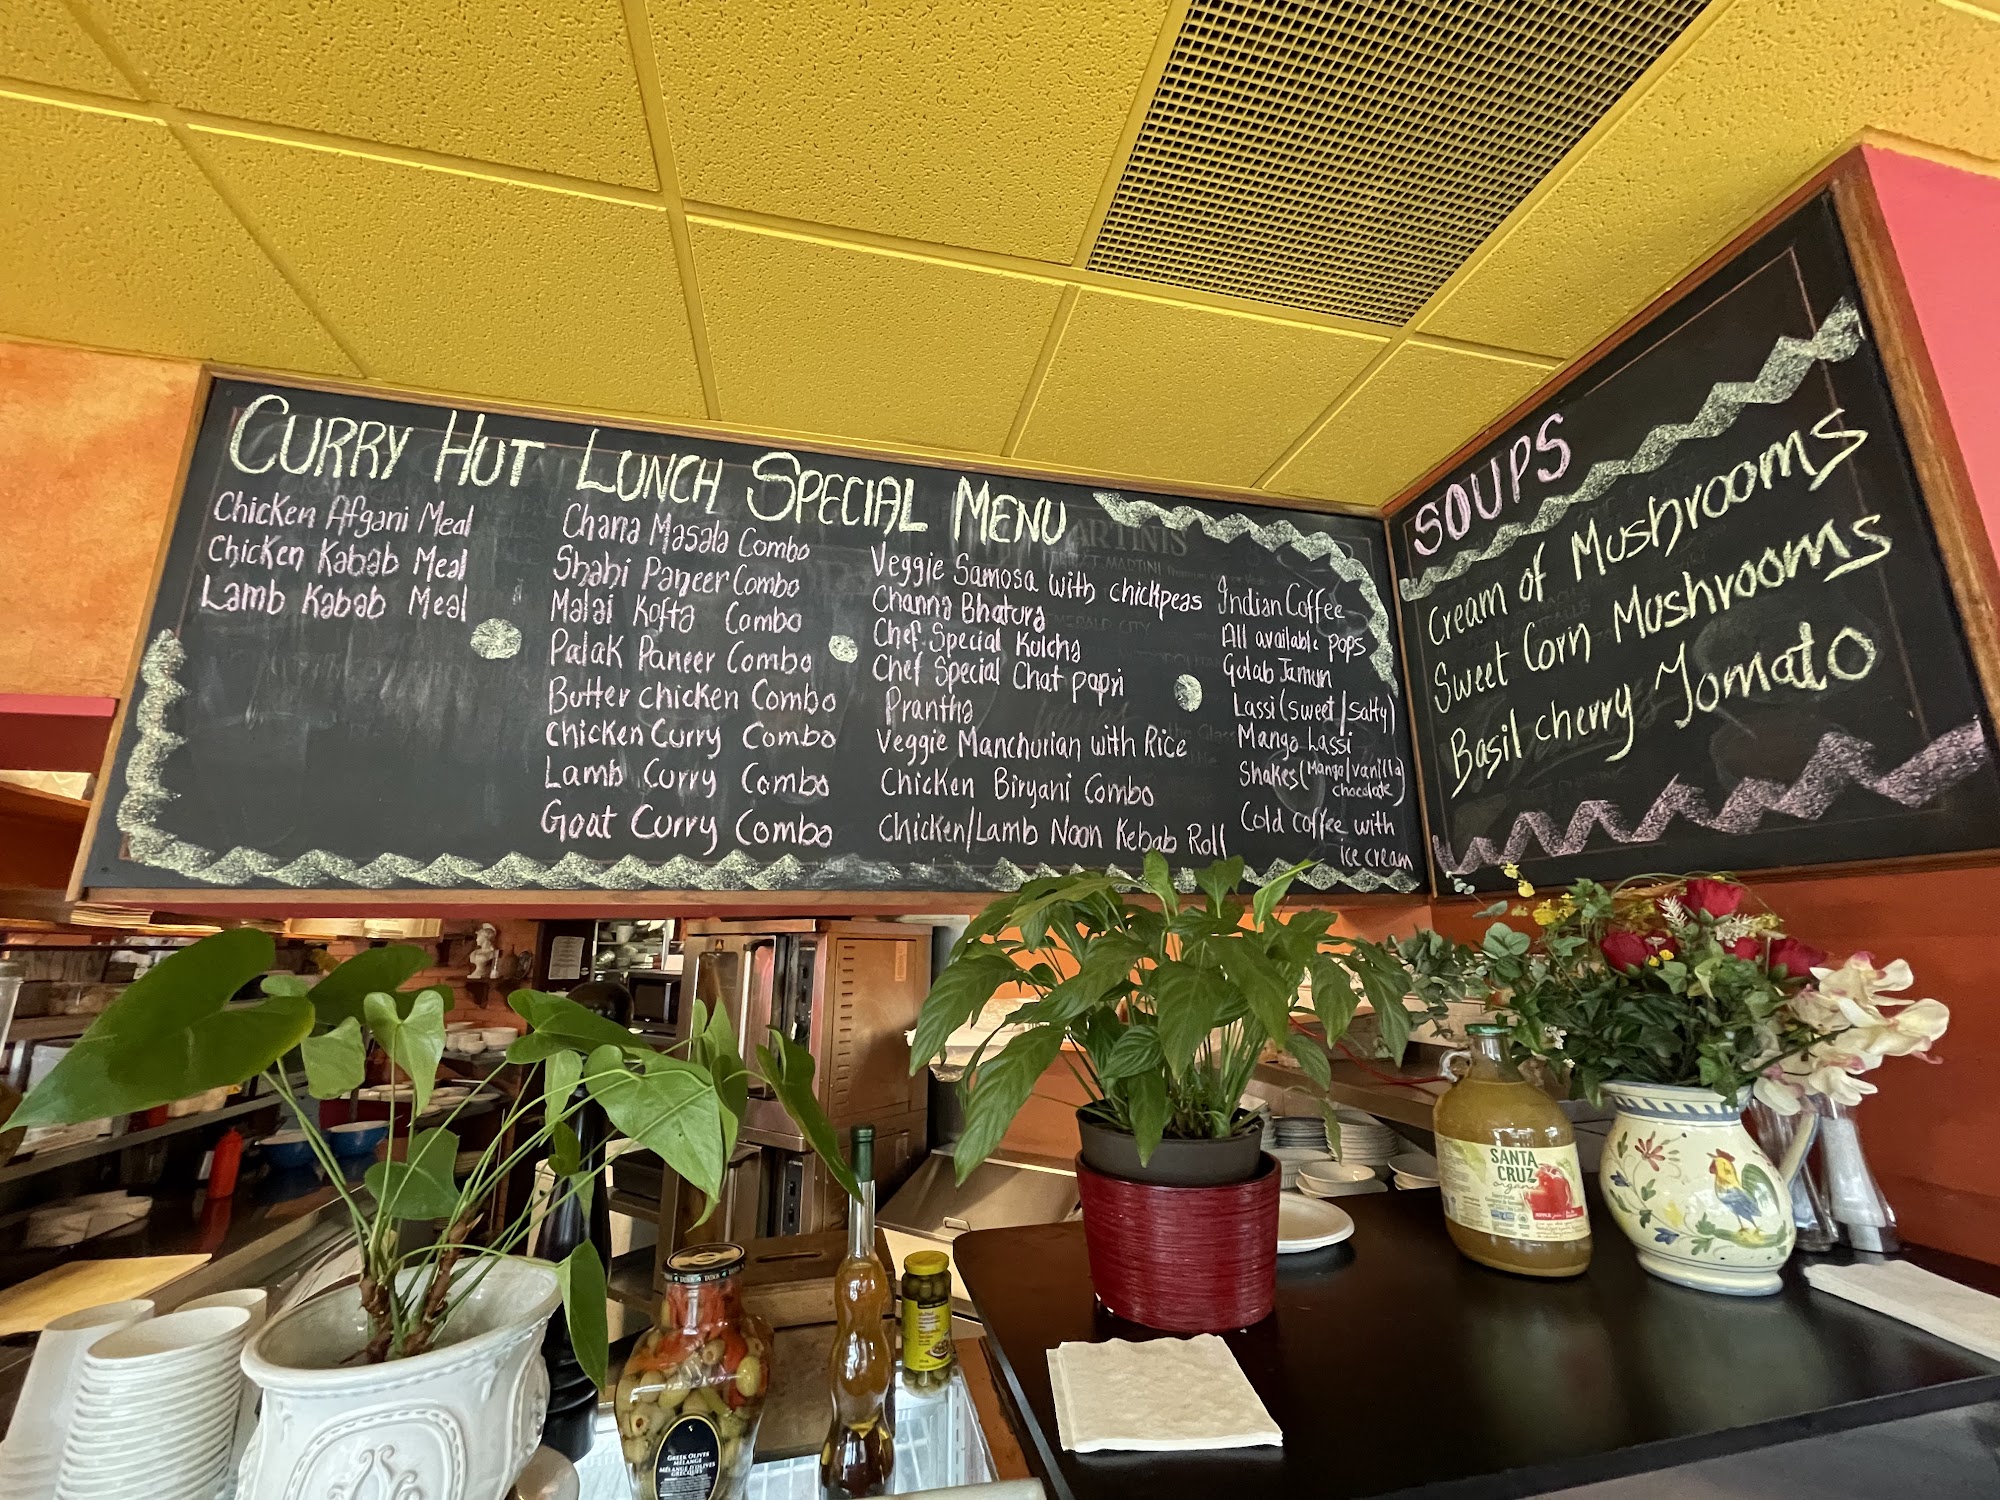 CURRY HUT LUNCH SPECIAL MENU
Chicken Afgani Meal
Chicken Kabab Meal
Lamb Kabab Meal
Chana Masala Combo
Shahi Paneer Combo
Malai Kofta Combo
Palak Paneer Combo
Butter chicken Combo
Chicken Curry Combo
Lamb Curry Combo
Goat Curry Combo
Veggie Samosa with chickpeas
Channa Bhatura
Chef. Special Kulcha
Chef Special Chat papri
Prantha
Veggie Manchurian with Rice
Chicken Biryani Combo
Chicken/Lamb Naan Kebab Roll
Indian Coffee
All available pops
Gulab Jamun
Lassi (sweet/salty)
Mango Lassi
Shakes (Mango/vanilla
chocolate)
Cold coffee with
ice cream
SOUPS
Cream of Mushrooms
Sweet Corn Mushrooms
Basil cherry Tomato
MARTINIS
SANTA
CRUZ
organic
GREEK OLIVES
MÉLANGE
MÉLANGE D'OLIVES
GRECQUES